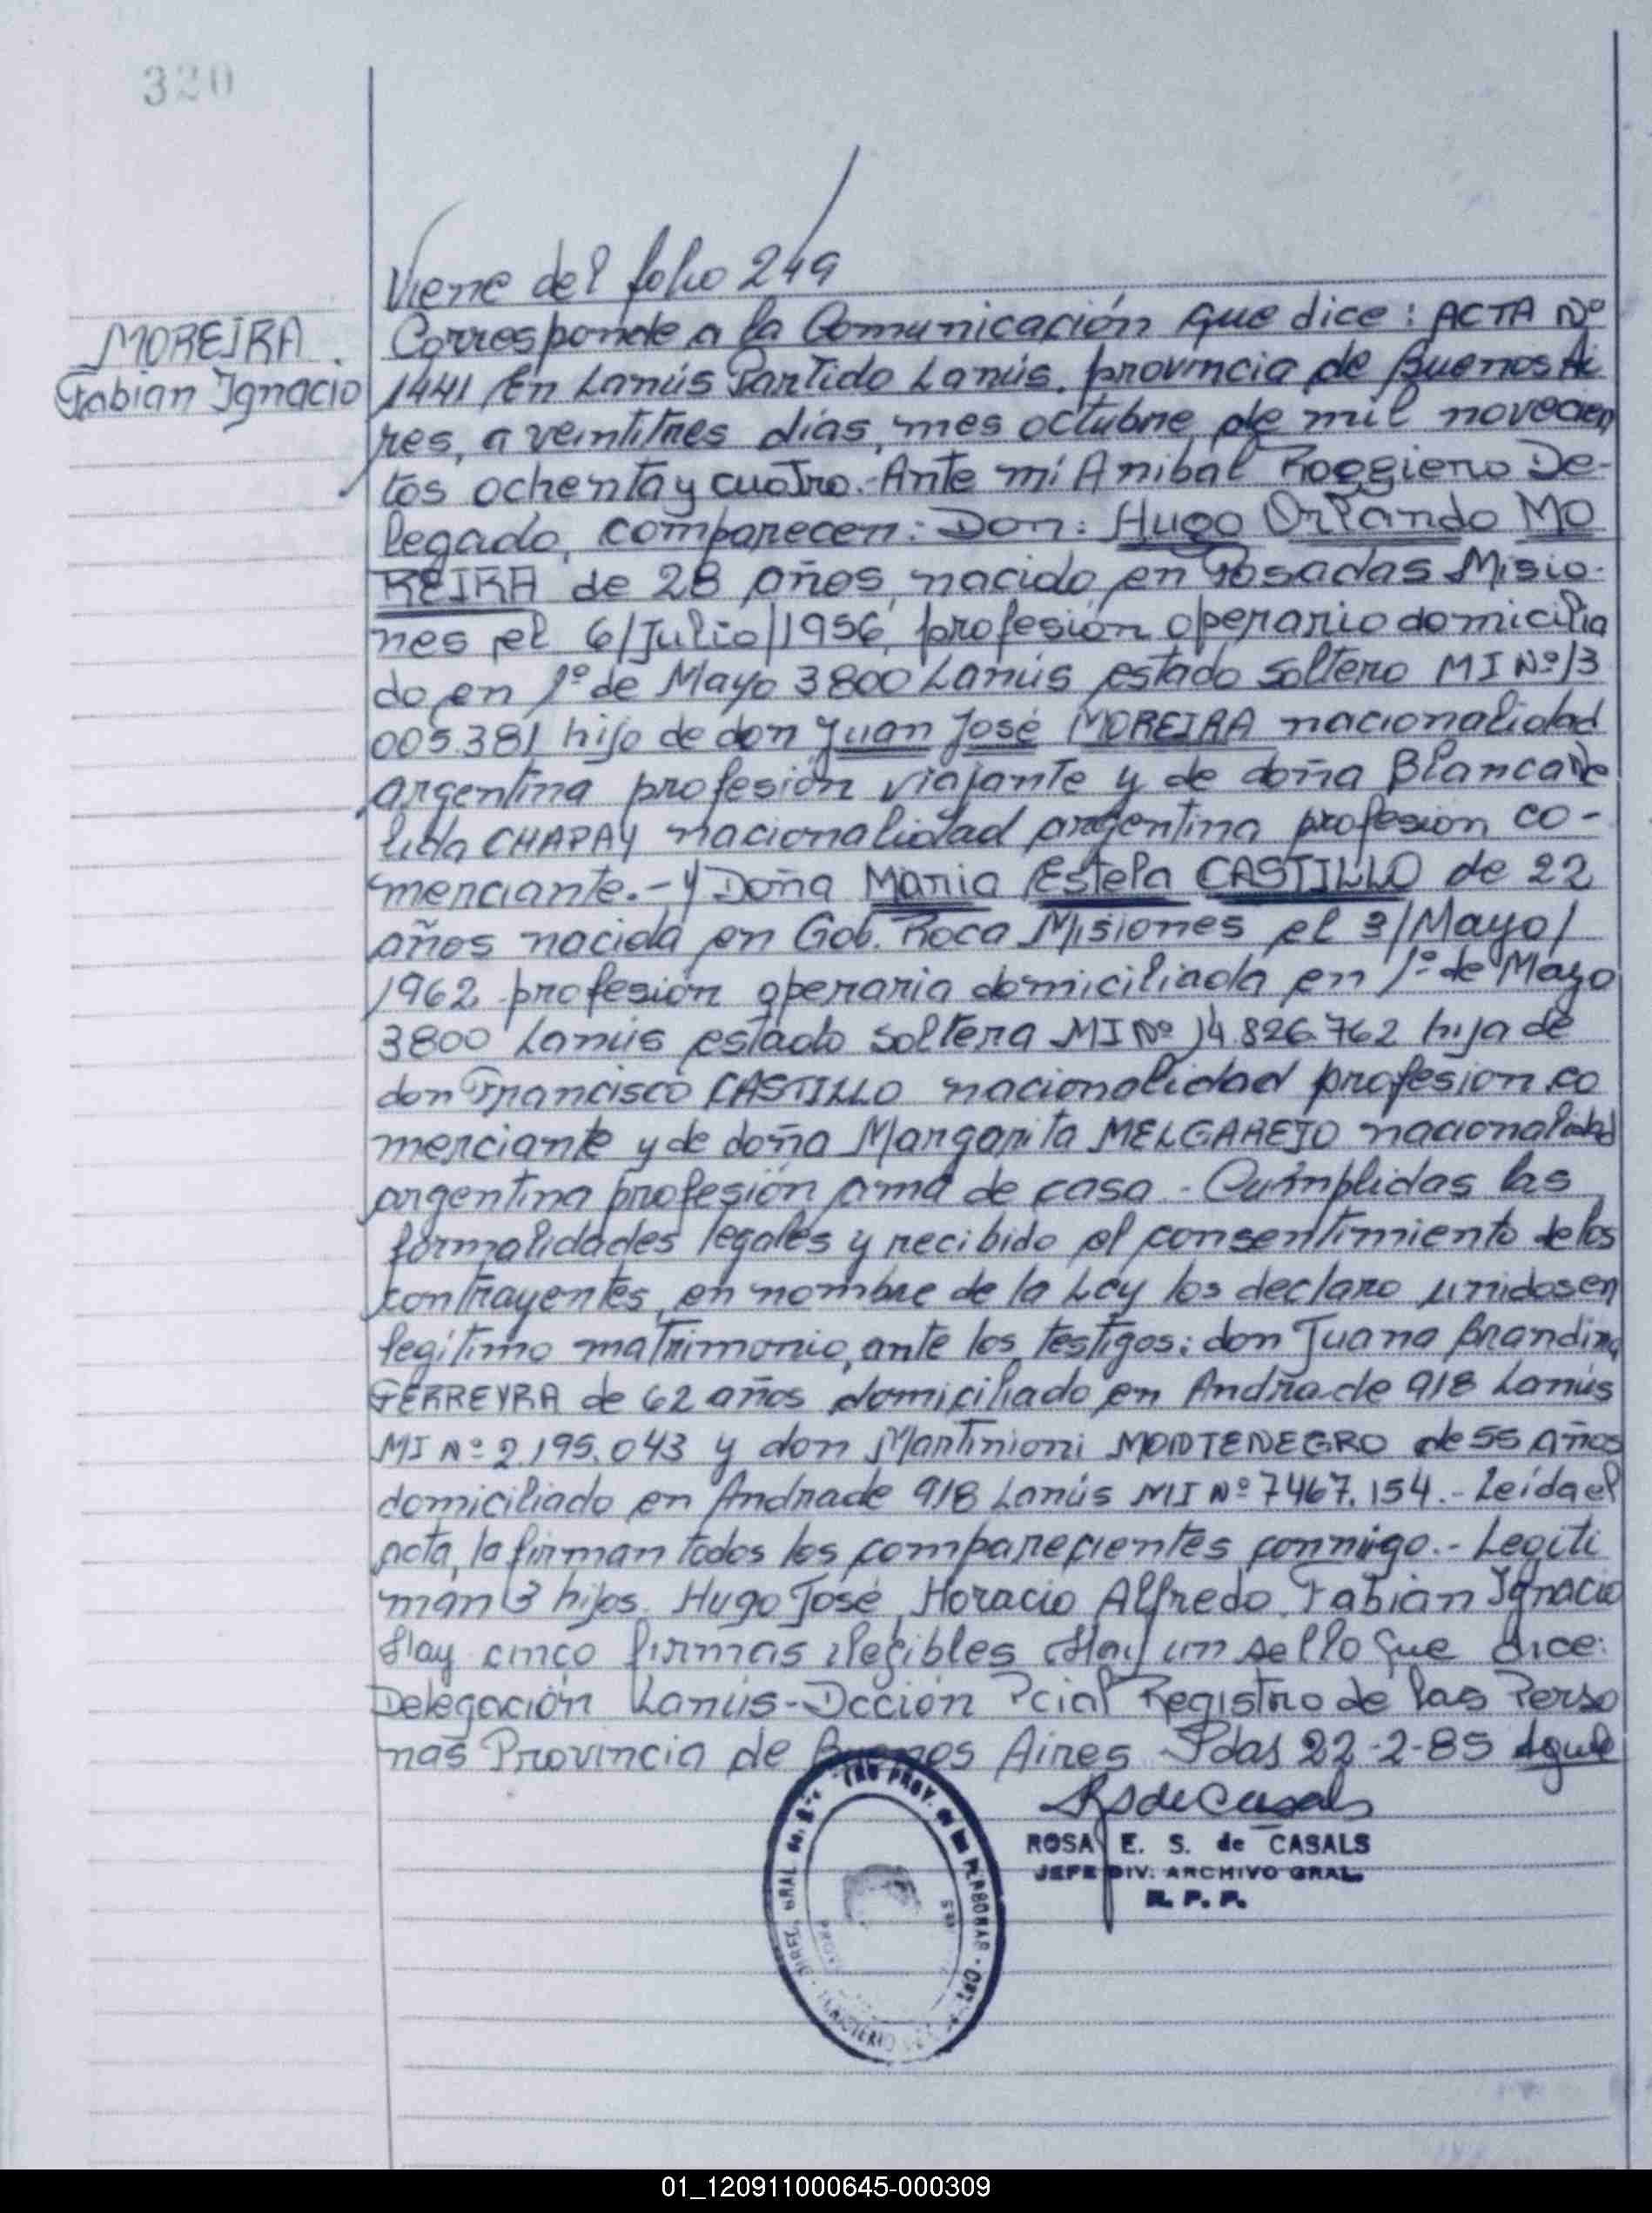 320
Viene del folio 249
MOREIRA
Fabian Ignacio
Corresponde a la Comunicación que dice: ACTA Nº
1441 En Lanús Partido Lanús, provincia de Buenos Ai
res, a veintitres días, mes octubre de mil novecien
tos ochenta y cuatro.- Ante mí Anibal Roggiero De-
legado, comparecen: Don: Hugo Orlando MO
REIRA de 28 años, nacido en Posadas Misio-
nes el 6/Julio/1956, profesión operario domicilia
do en 1º de Mayo 3800 Lanús estado soltero MI Nº 13
005.381 hijo de don Juan José MOREIRA nacionalidad
argentina profesión viajante y de doña Blanca Ne
lida CHAPAY nacionalidad argentina profesion co-
merciante.- y Doña Maria Estela CASTILLO de 22
años nacida en Gob. Roca Misiones el 3/Mayo/
1962 profesión operaria domiciliada en 1º de Mayo
3800 Lanús estado soltera MI Nº 14.826.762 hija de
don Francisco CASTILLO nacionalidad profesion co
merciante y de doña Margarita MELGAREJO nacionalidad
argentina profesión ama de casa - Cumplidas las
formalidades legales y recibido el consentimiento de los
contrayentes, en nombre de la Ley los declaro unidos en
legítimo matrimonio, ante los testigos: don Juana Brandina
FERREYRA de 62 años domiciliado en Andrade 918 Lanús
MI Nº 2.195.043 y don Martinioni MONTENEGRO de 55 Años
domiciliado en Andrade 918 Lanús MI Nº 7467.154.- Leída el
acta, la firman todos los comparecientes conmigo.- Legiti
man 3 hijos. Hugo José, Horacio Alfredo, Fabián Ignacio
Hay cinco firmas ilegibles Hay un sello que dice:
Delegación Lanús - Dcción Pcial Registro de las Perso
nas Provincia de Buenos Aires Pdas 22-2-85
RSdeCasals
ROSA E. S. de CASALS
JEFE DIV. ARCHIVO GRAL.
R. P. P.
PROV. de las PERSONAS
01_120911000645-000309